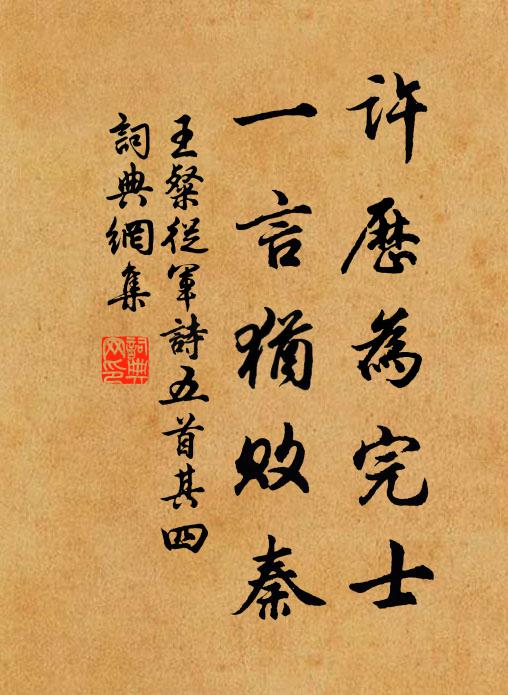 許歷為完士
一言猶敗秦
王粲從軍詩五首其四
詞典網集
詞典
网印